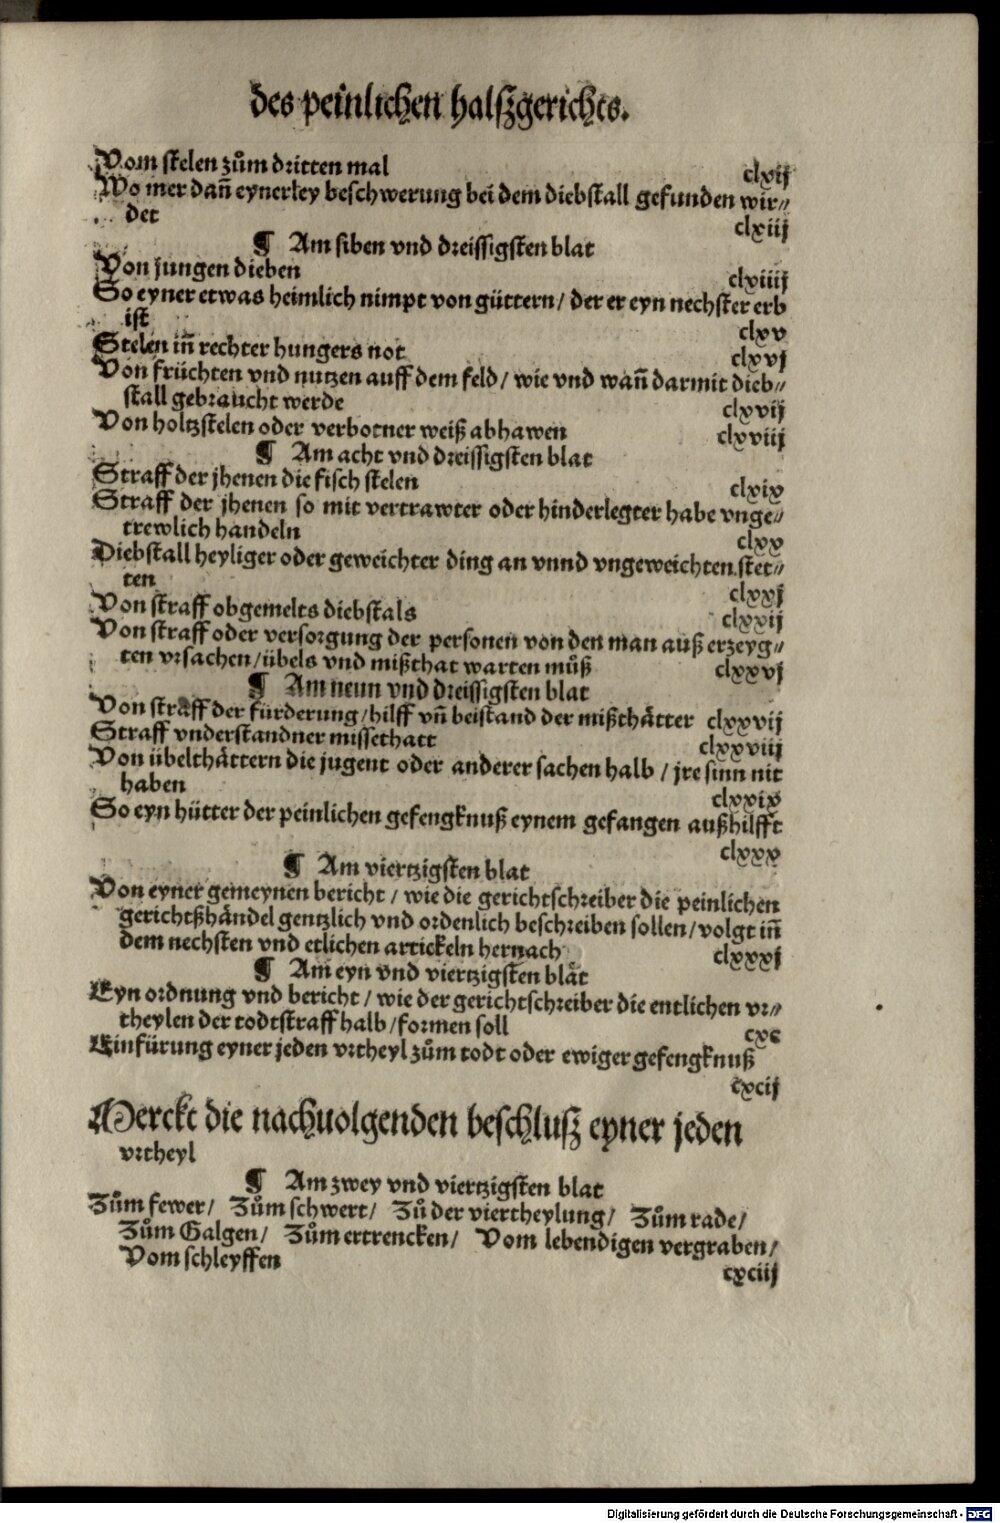 des peinlichen halszgerichts.
Vom stelen zům dritten mal clxij
Wo mer dañ eynerley beschwerung bei dem diebstall gefunden wir⸗
det clxiij
¶ Am siben vnd dreissigsten blat
Von jungen dieben clxiiij
So eyner etwas heimlich nimpt von güttern/ der er eyn nechster erb
ist clxv
Stelen iñ rechter hungers not clxvj
Von früchten vnd nutzen auff dem feld/ wie vnd wañ darmit dieb⸗
stall gebraucht werde clxvij
Von holtzstelen oder verbotner weiß abhawen clxviij
¶ Am acht vnd dreissigsten blat
Straff der jhenen die fisch stelen clxix
Straff der jhenen so mit vertrawter oder hinderlegter habe vnge⸗
trewlich handeln clxx
Diebstall heyliger oder geweichter ding an vnnd vngeweichten stet⸗
ten clxxj
Von straff obgemelts diebstals clxxij
Von straff oder versorgung der personen von den man auß erzeyg⸗
ten vrsachen/übels vnd mißthat warten můß clxxvj
¶ Am neun vnd dreissigsten blat
Von straff der fürderung/hilff vñ beistand der mißthätter clxxvij
Straff vnderstandner missethatt clxxviij
Von übelthättern die jugent oder anderer sachen halb / jre sinn nit
haben clxxix
So eyn hütter der peinlichen gefengknuß eynem gefangen außhilfft
clxxx
¶ Am viertzigsten blat
Von eyner gemeynen bericht / wie die gerichtschreiber die peinlichen
gerichtßhändel gentzlich vnd ordenlich beschreiben sollen/volgt iñ
dem nechsten vnd etlichen artickeln hernach clxxxj
¶ Am eyn vnd viertzigsten blät
Eyn ordnung vnd bericht / wie der gerichtschreiber die entlichen vr⸗
theylen der todtstraff halb/formen soll cxc
Einfürung eyner jeden vrtheyl zům todt oder ewiger gefengknuß
cxcij
Merckt die nachuolgenden beschlusz eyner jeden
vrtheyl
¶ Am zwey vnd viertzigsten blat
Zům fewer/ Zům schwert/ Zů der viertheylung/ Zům rade/
Zům Galgen/ Zům ertrencken/ Vom lebendigen vergraben/
Vom schleyffen cxciij
Digitalisierung gefördert durch die Deutsche Forschungsgemeinschaft - DFG